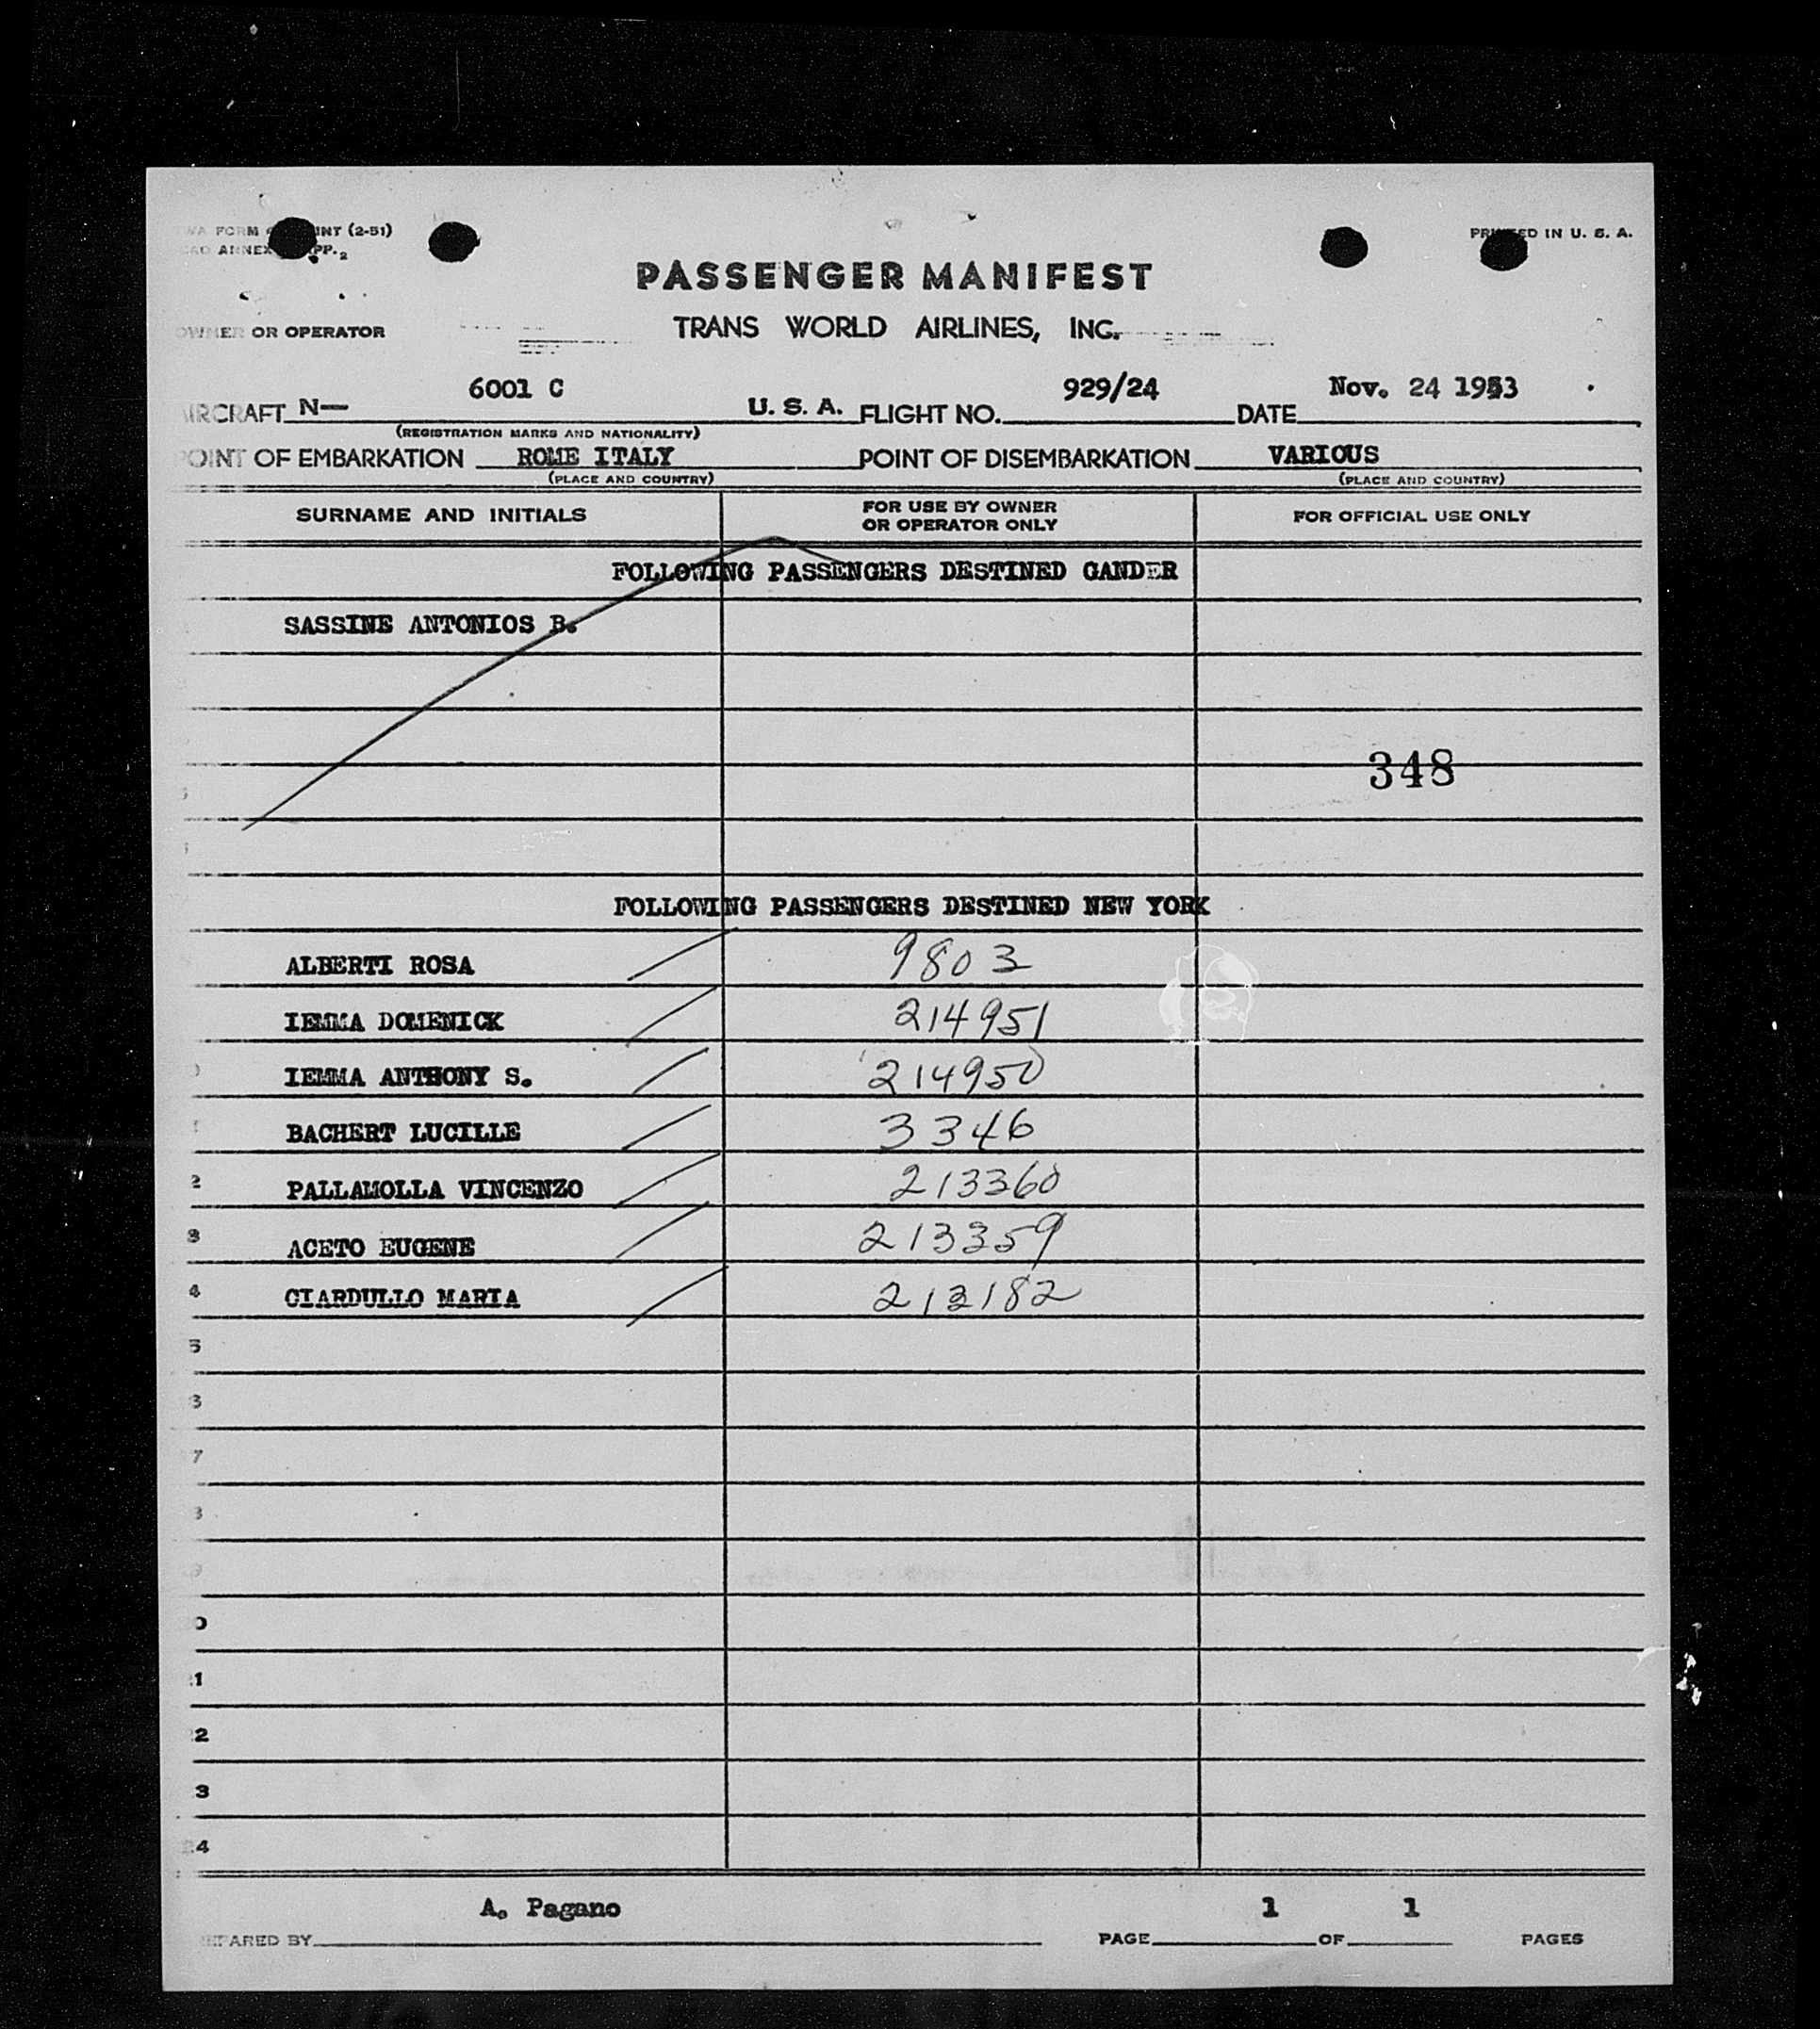 FORM INT (2-51)
ANNEX PP. 2
PRINTED IN U. S. A.
PASSENGER MANIFEST
OWNER OR OPERATOR TRANS WORLD AIRLINES, INC.
AIRCRAFT N— 6001 C U. S. A. FLIGHT NO. 929/24 DATE Nov. 24 1953
(REGISTRATION MARKS AND NATIONALITY)
POINT OF EMBARKATION ROME ITALY POINT OF DISEMBARKATION VARIOUS
(PLACE AND COUNTRY) (PLACE AND COUNTRY)
SURNAME AND INITIALS FOR USE BY OWNER OR OPERATOR ONLY FOR OFFICIAL USE ONLY
FOLLOWING PASSENGERS DESTINED GANDER
SASSINE ANTONIOS B.
348
FOLLOWING PASSENGERS DESTINED NEW YORK
ALBERTI ROSA 9803
IEMMA DOMENICK 214951
IEMMA ANTHONY S. 214950
BACHERT LUCILLE 3346
2 PALLAMOLLA VINCENZO 213360
3 ACETO EUGENE 213359
4 CIARDULLO MARIA 213182
5
7
0
1
2
3
4
A. Pagano 1 1
PREPARED BY PAGE OF PAGES